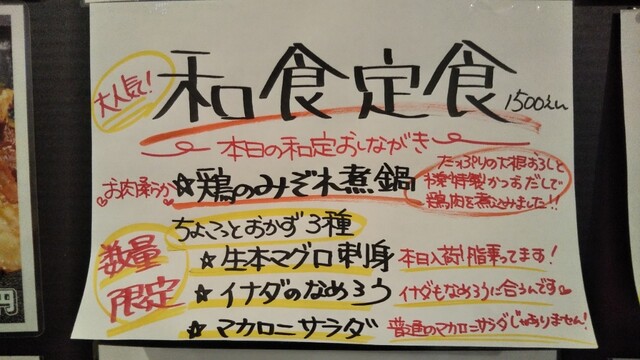 大人気!
和食定食
1500えん
本日の和定おしながき
お肉柔らか
☆鶏のみぞれ煮鍋
たっぷりの大根おろしと
特製かつおだしで
鶏肉を煮込みました!!
数量
限定
ちょこっとおかず3種
☆生本マグロ刺身
本日入荷!脂乗ってます!
☆イナダのなめろう
イナダもなめろうに合うんです
☆マカロニサラダ
普通のマカロニサラダじゃありません!
円